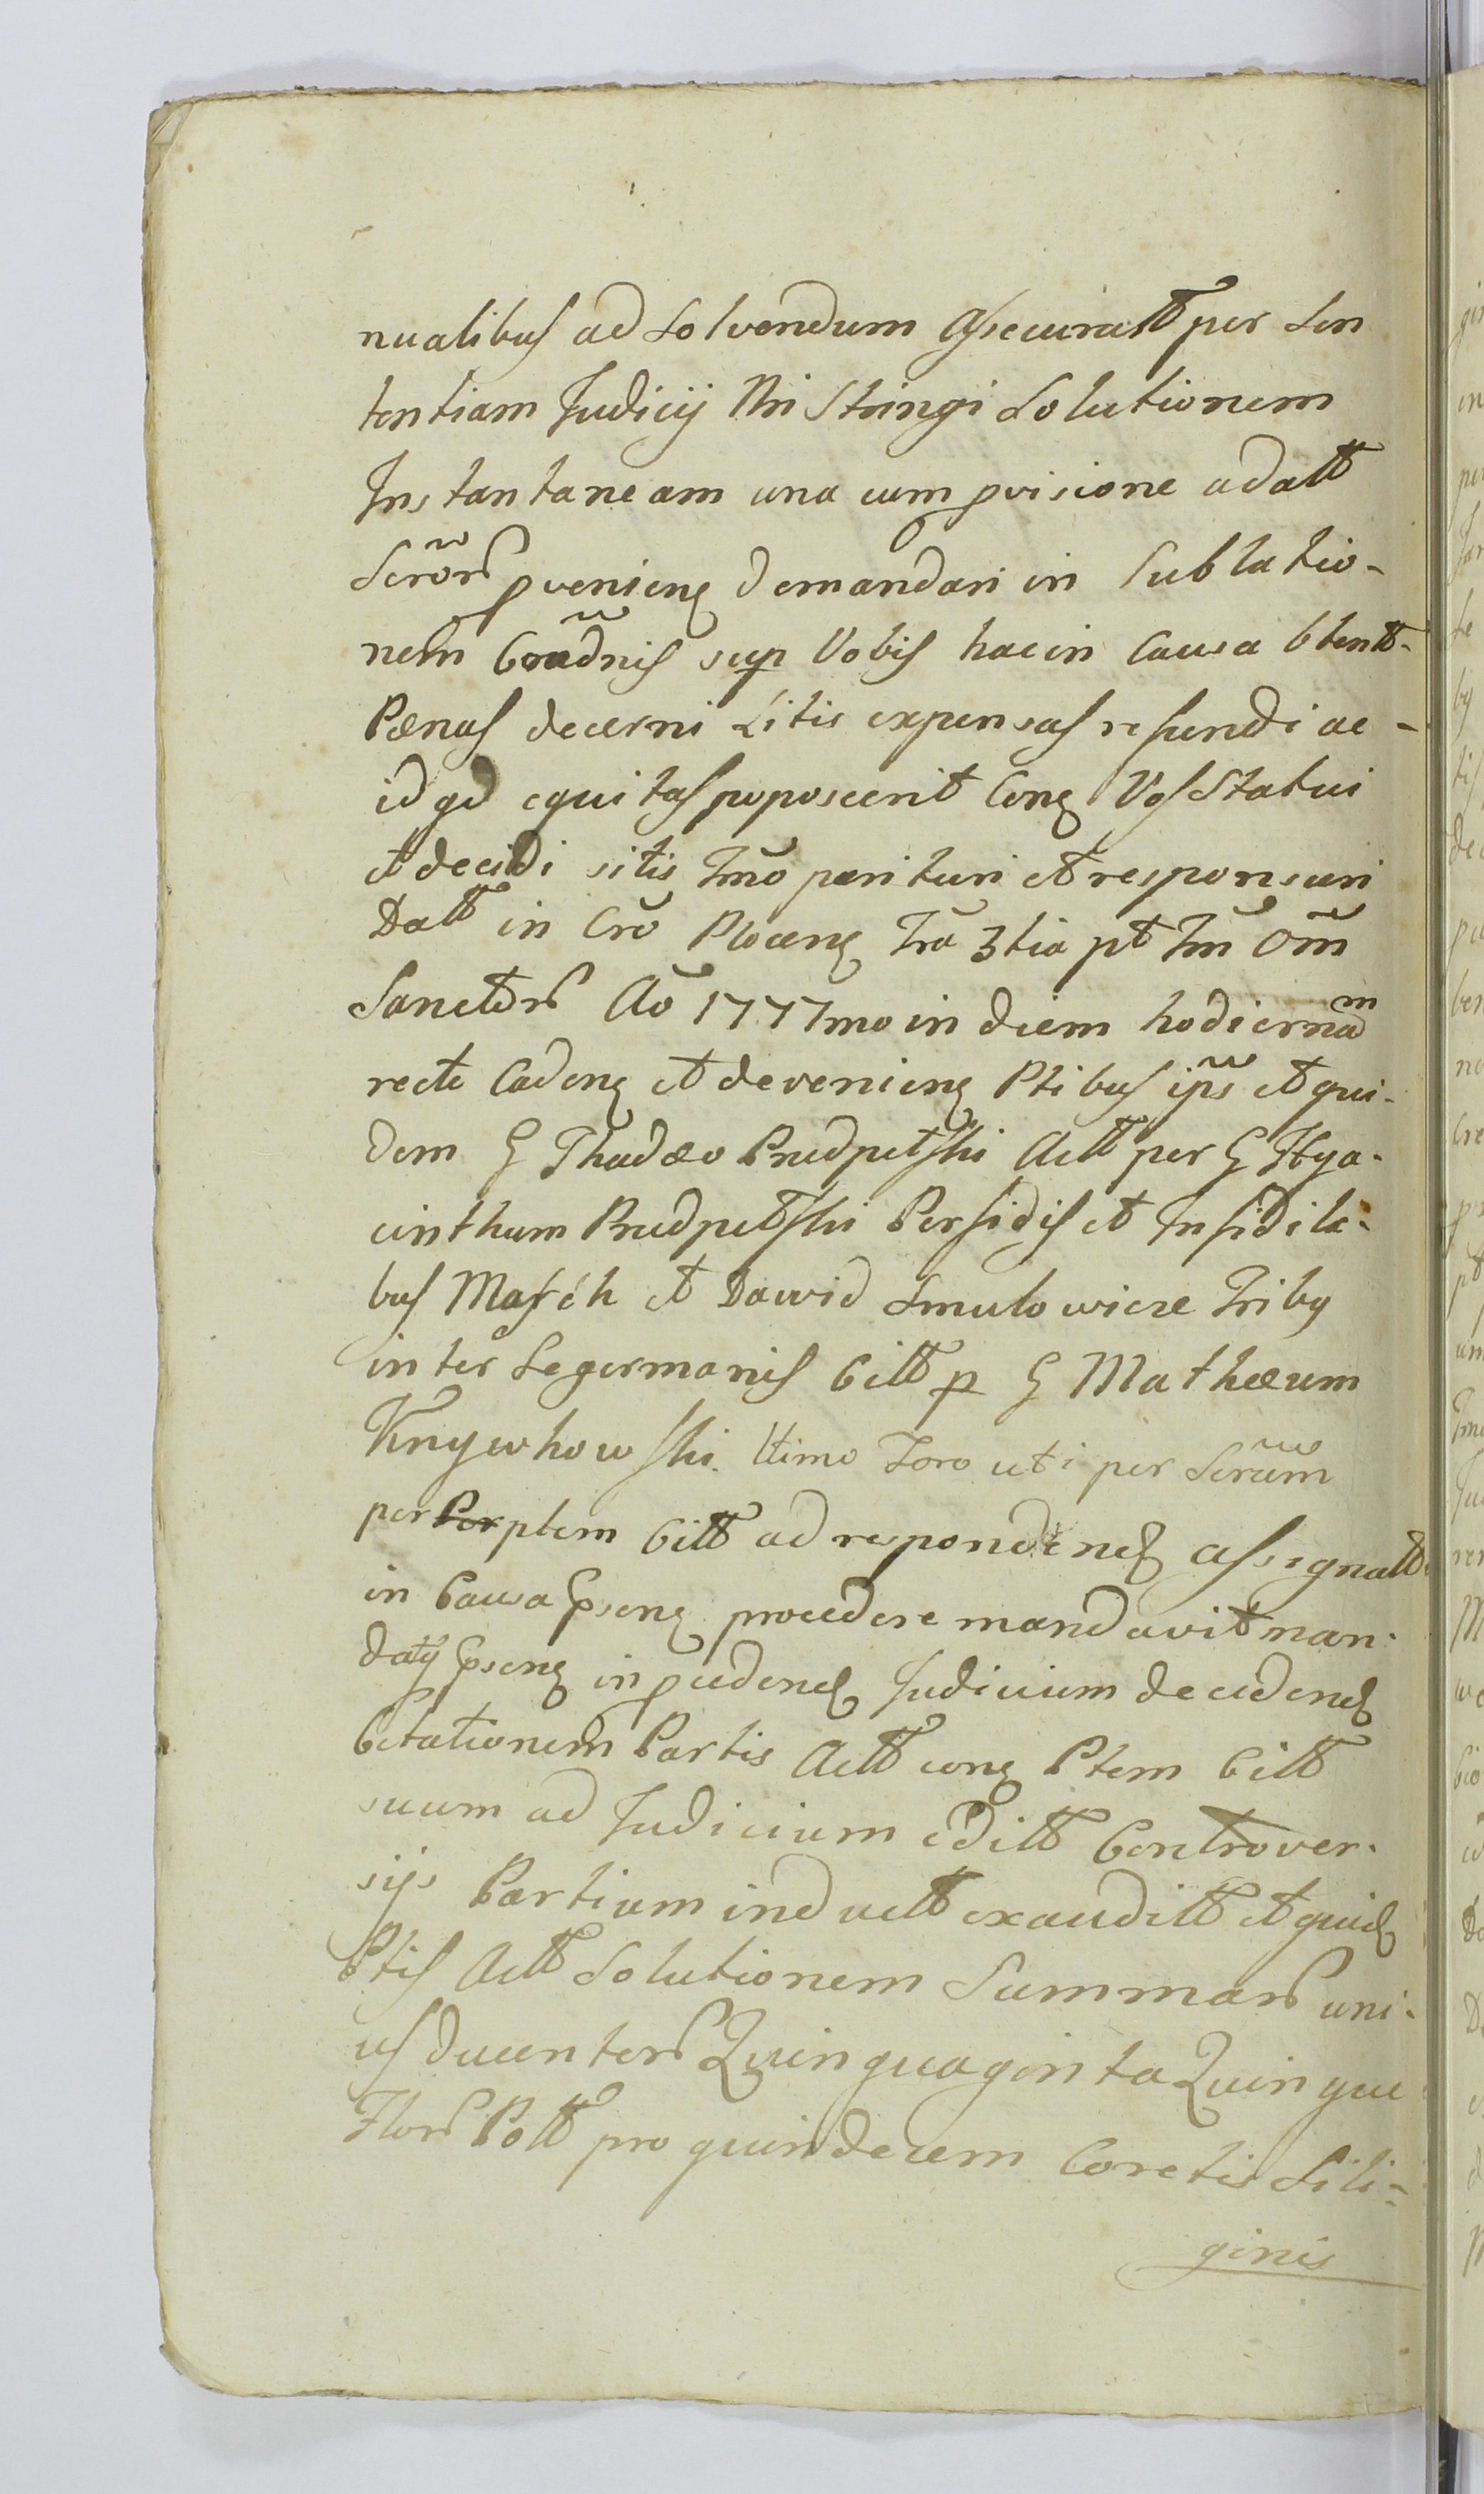 nualibus ad Solvendum Assecuratt per Sen
tentiam Judicij Nri Stringi Solutionem
Instantaneam una cum pvisione adatt
Scror pvenien demandari in Sublatio-
nem Condnis sup Vobis hac in Causa Obtent-
Pænas decerni Litis expensas refundi ac-
id qd equitas poposcerit Con Vos Statui
et decidi sitis Tmo parituri et responsuri
Datt in Cro Plocen Fra 3tia pt Fm Om
Sanctor Ao 1777mo in diem hodiernam
recte Caden et devenien Ptibus ips et qui-
dem G Thadæo Prudpetski Actt per G Hya-
cinthum Prudpetski Perfidis et Infideli-
bus Mosfch et Dawid Smulowicze Triby
inter Se germanis Citt p G Mathæum
Knywkowski. Ltimo Foro uti per Scrum
per Per ptem Citt ad respondend assignatt
in Causa Psen procedere mandavit man-
daty Psen in pcedend Judicium decidend
Citationem Partis Actt con Ptem Citt
suum ad Judicium editt Controver-
sijs Partium inductt exauditt et quid
Ptis Actt Solutionem Summar uni-
us ducentor Quinquaginta Quinque
Flor Poll pro quindecem Coretis Sili-
ginis